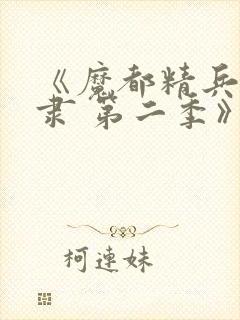 《魔都精兵
隶 第二季》
柯莲妹